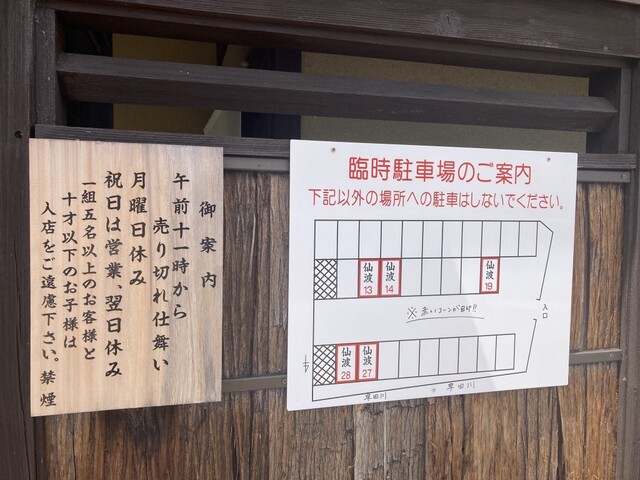 御案内
午前十一時から
売り切れ仕舞い
月曜日休み
祝日は営業、翌日休み
一組五名以上のお客様と
十才以下のお子様は
入店をご遠慮下さい。禁煙
臨時駐車場のご案内
下記以外の場所への駐車はしないでください。
仙波 13
仙波 14
仙波 19
※赤いコーンが目印!!
入口
仙波 28
仙波 27
早田川
早田川